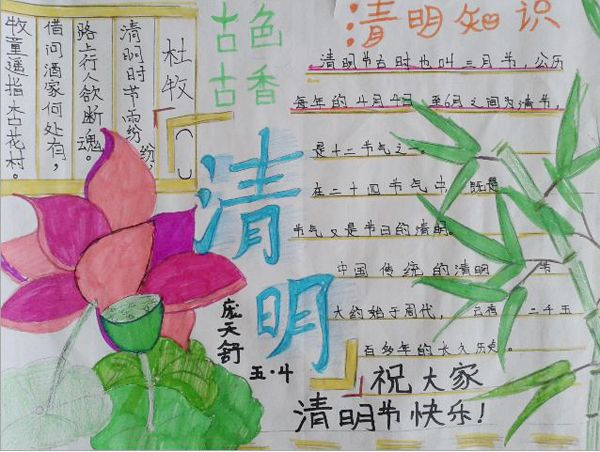 杜牧
清明时节雨纷纷,
路上行人欲断魂。
借问酒家何处有,
牧童遥指杏花村。
古色
古香
清明
天舒
五·4
清明知识
清明节古时也叫三月节,公历
每年的4月4日 至6月之间为清节,
是十二节气之一。
在二十四节气中 既是
节气又是节日的清明。
中国传统的清明 节
大约始于周代, 已有 二千五
百多年的长久历史。
祝大家
清明节快乐!